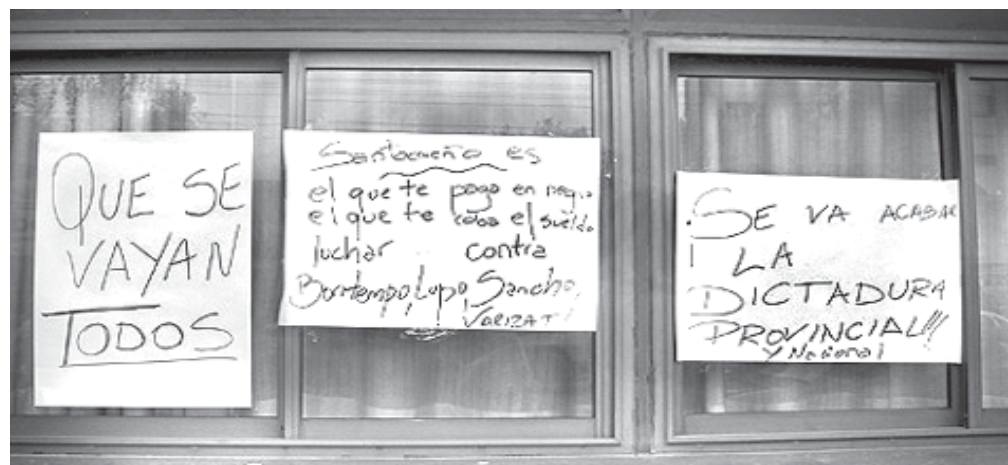 QUE SE
VAYAN
TODOS
Santacruceño es
el que te paga en negro
el que te roba el sueldo
luchar contra
Bontempo, Lupo, Sancho,
VARIZAT!
SE VA ACABAR
LA
DICTADURA
PROVINCIAL!!!
y Nacional